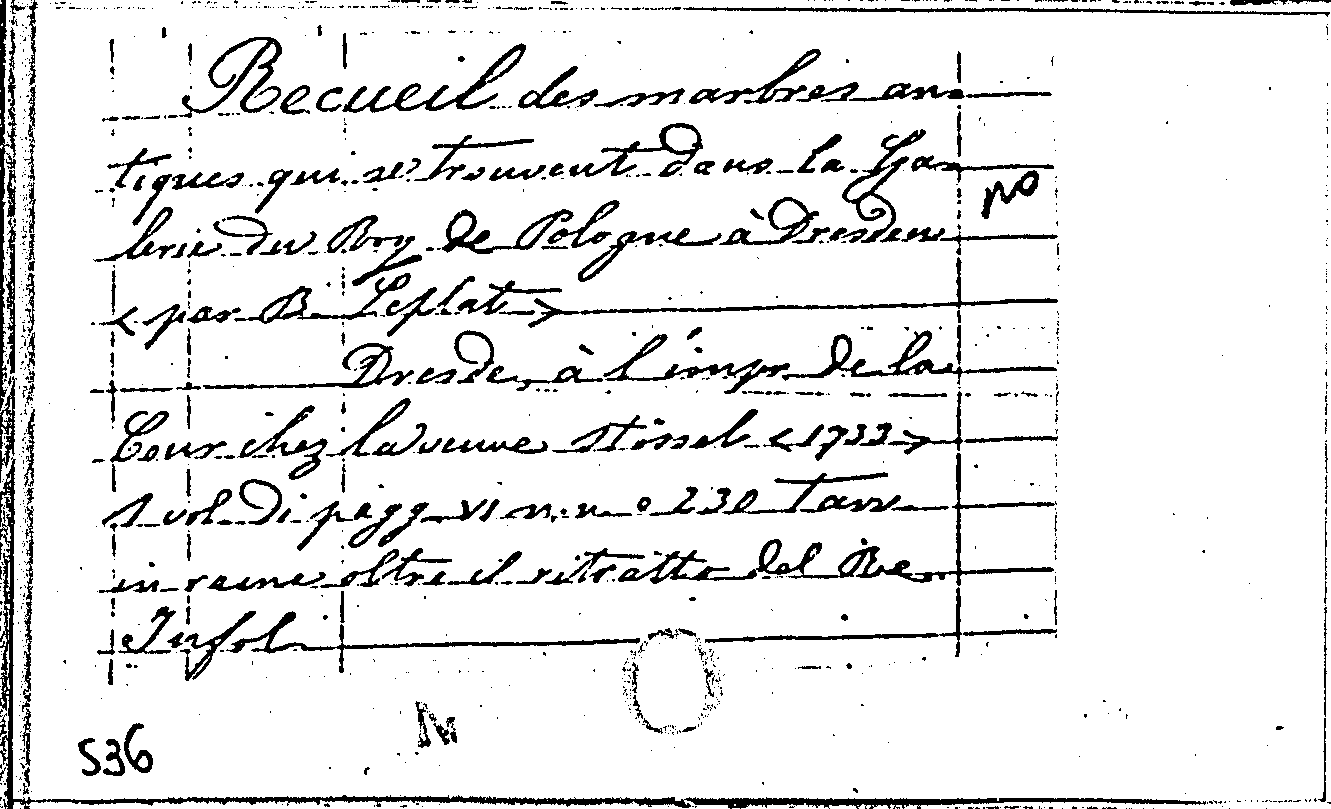 Recueil des marbres an=
tiques qui se trouvent dans la Ga=
lerie du Roy de Pologne à Dresden
no
<par B. Leplat>
Dresde, à l'impr. de la
Cour chez la veuve Stössel <1733>
1 vol. di pagg. VI n.n. e 230 tavv.
in rame oltre il ritratto del Re.
In fol.
N
536